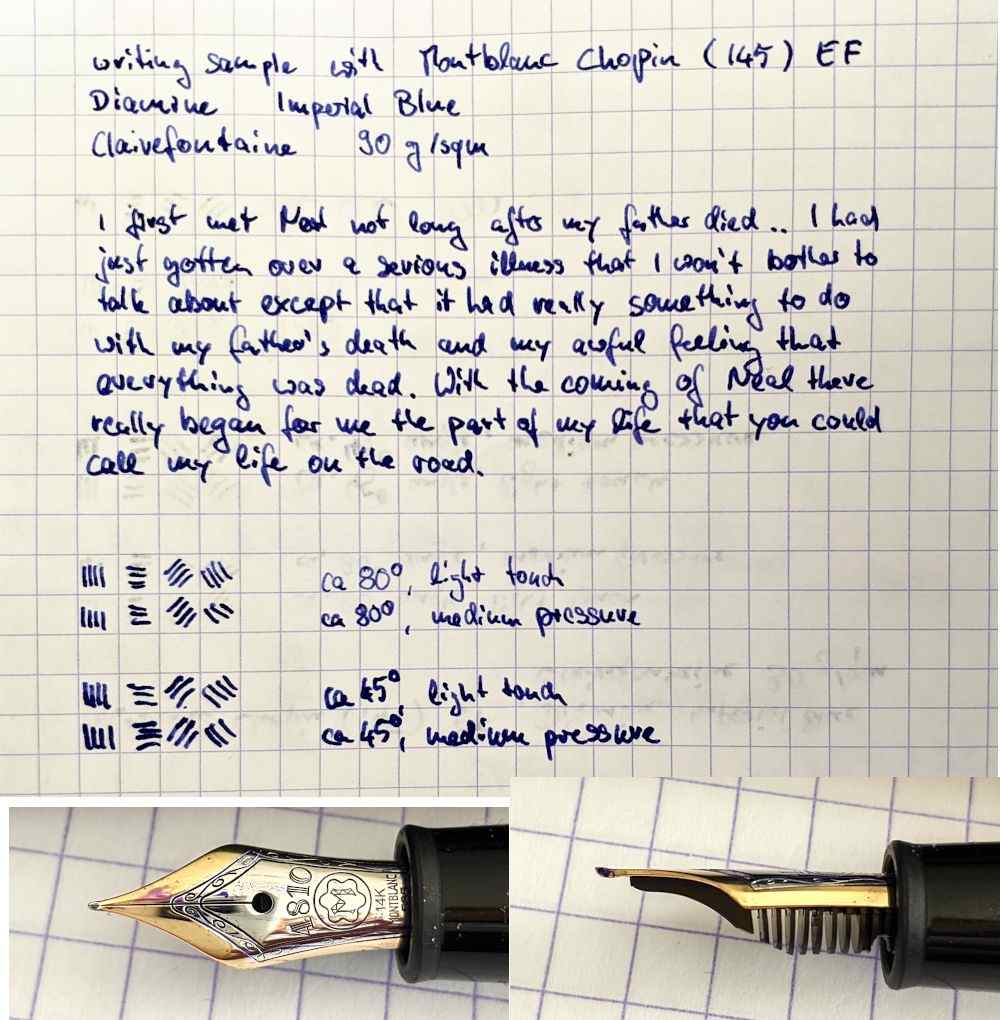 writing sample with Montblanc Chopin (145) EF
Diamine Imperial Blue
Clairefontaine 90 g/sqm
I first met Neal not long after my father died.. I had
just gotten over a serious illness that I won't bother to
talk about except that it had really something to do
with my father's death and my awful feeling that
everything was dead. With the coming of Neal there
really began for me the part of my life that you could
call my life on the road.
ca 80°, light touch
ca 80°, medium pressure
ca 45°, light touch
ca 45°, medium pressure
4810
M
14K
MONTBLANC
585